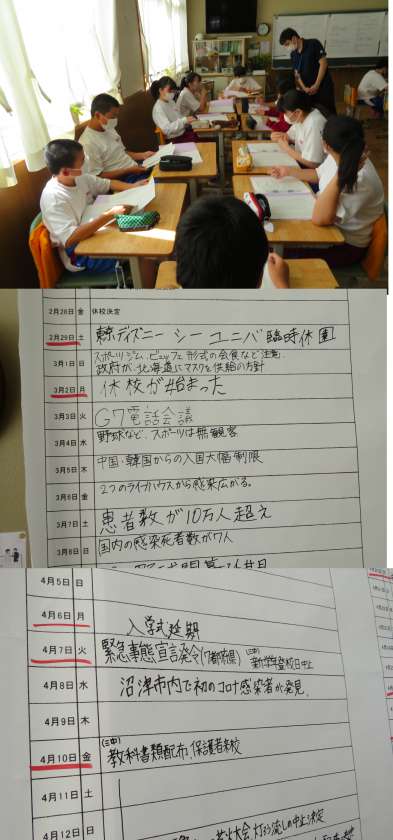 2月28日 金 休校決定
2月29日 土 東京ディズニーシー ユニバ 臨時休園
3月1日 日 スポーツジム、ビュッフェ形式の会食など注意.
政府が北海道にマスクを供給の方針
3月2日 月 休校が始まった
3月3日 火 G7電話会議
3月4日 水 野球など、スポーツは無観客
3月5日 木 中国・韓国からの入国大幅制限
3月6日 金 2つのライブハウスから感染広がる。
3月7日 土 患者数が10万人超え
3月8日 日 国内の感染死者数が7人
4月5日 日
4月6日 月 入学式延期
4月7日 火 緊急事態宣言発令(7都府県) (三中) 新学年登校日中止
4月8日 水 沼津市内で初のコロナ感染者が発見.
4月9日 木
4月10日 金 (三中) 教科書類配布、保護者来校
4月11日 土
4月12日 日 大会 灯ろう流しの中止決定